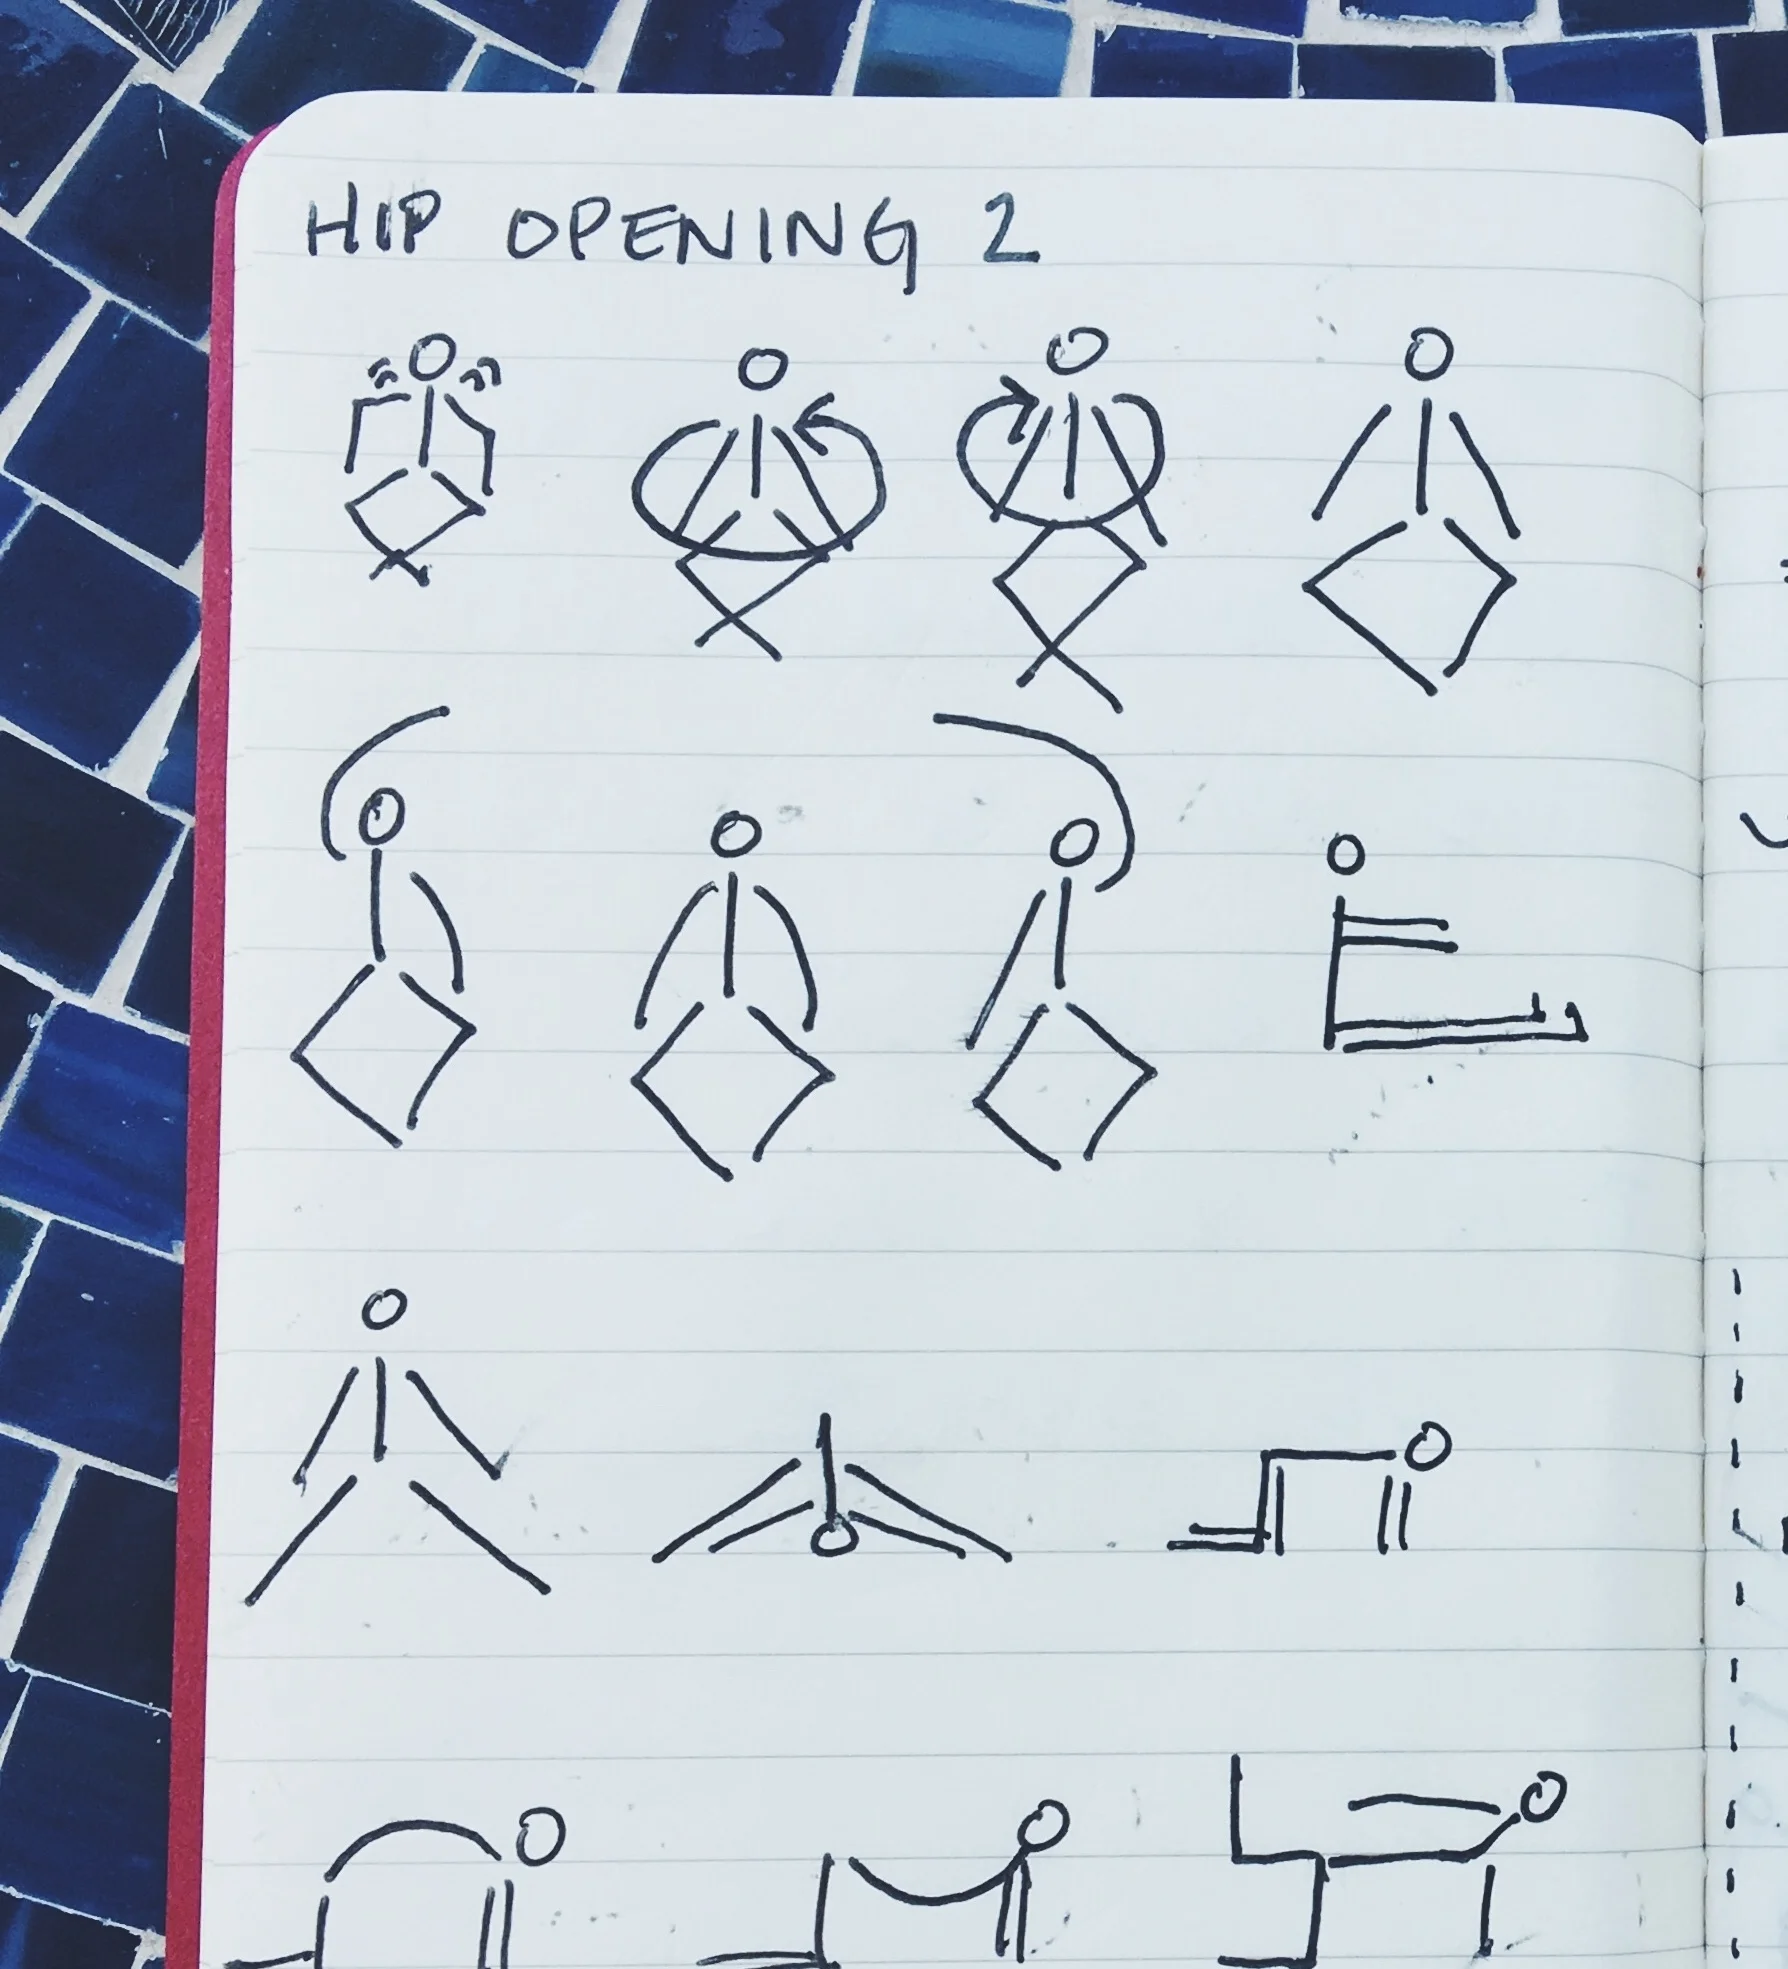 HIP OPENING 2